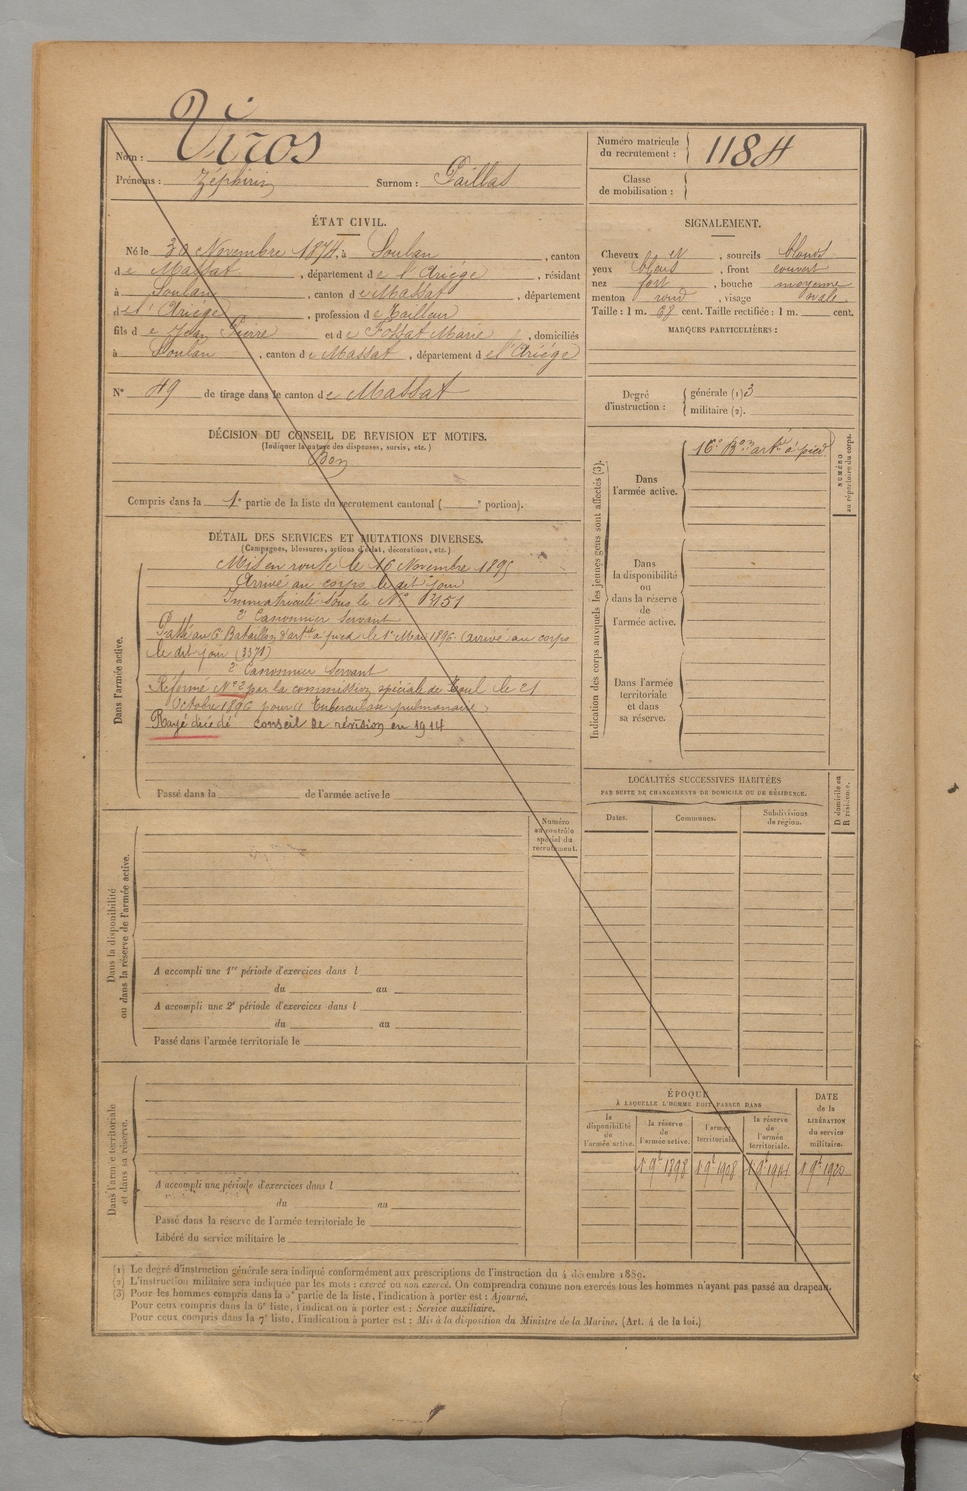 Nom : Viros
Prénoms : Zéphirin Surnom : Paillas
Numéro matricule du recrutement : 1184
Classe de mobilisation :
ÉTAT CIVIL.
Né le 30 Novembre 1874, à Soulan, canton
de Massat, département de l'Ariége, résidant
à Soulan, canton de Massat, département
de l'Ariége, profession de Tailleur
fils de Jean Pierre et de Fossat Marie, domiciliés
à Soulan, canton de Massat, département de l'Ariége
N° 49 de tirage dans le canton de Massat
SIGNALEMENT.
Cheveux et, sourcils blonds
yeux bleus, front couvert
nez fort, bouche moyenne
menton rond, visage ovale
Taille : 1 m. 68 cent. Taille rectifiée : 1 m. cent.
MARQUES PARTICULIÈRES :
Degré d'instruction : générale (1) 3
militaire (2).
DÉCISION DU CONSEIL DE REVISION ET MOTIFS.
(Indiquer la nature des dispenses, sursis, etc.)
Bon
Compris dans la 1e partie de la liste du recrutement cantonal ( e portion).
DÉTAIL DES SERVICES ET MUTATIONS DIVERSES.
(Campagnes, blessures, actions d'éclat, décorations, etc.)
Dans l'armée active.
Mis en route le 16 Novembre 1895
Arrivé au corps le dit jour
Immatriculé sous le N° 3151
2e Canonnier Servant
Passé au 6e Bataillon d'artie à pied le 1er Mai 1896. (arrivé au corps
le dit jour (3371)
2e Canonnier Servant
Réformé N° 2 par la commission spéciale de Toul le 21
Octobre 1896 pour Tuberculose pulmonaire
Rayé décédé Conseil de révision en 1914
Passé dans la de l'armée active le
Indication des corps auxquels les jeunes gens sont affectés (3).
Dans l'armée active.
16e Bon art. à pied
NUMÉRO au répertoire du corps.
Dans la disponibilité ou dans la réserve de l'armée active.
Dans l'armée territoriale et dans sa réserve.
LOCALITÉS SUCCESSIVES HABITÉES
PAR SUITE DE CHANGEMENTS DE DOMICILE OU DE RÉSIDENCE.
Dates. Communes. Subdivisions de région. D domicile ou R résidence.
Numéro au contrôle spécial du recrutement.
Dans la disponibilité ou dans la réserve de l'armée active.
A accompli une 1re période d'exercices dans l
du au
A accompli une 2e période d'exercices dans l
du au
Passé dans l'armée territoriale le
Dans l'armée territoriale et dans sa réserve.
A accompli une période d'exercices dans l
du au
Passé dans la réserve de l'armée territoriale le
Libéré du service militaire le
ÉPOQUE
À LAQUELLE L'HOMME DOIT PASSER DANS
la disponibilité de l'armée active.
la réserve de l'armée active.
l'armée territoriale.
la réserve de l'armée territoriale.
DATE de la LIBÉRATION du service militaire.
1 9e 1898 1 9e 1908 1 9e 1914 1 9e 1920
(1) Le degré d'instruction générale sera indiqué conformément aux prescriptions de l'instruction du 4 décembre 1889.
(2) L'instruction militaire sera indiquée par les mots : exercé ou non exercé. On comprendra comme non exercés tous les hommes n'ayant pas passé au drapeau.
(3) Pour les hommes compris dans la 5e partie de la liste, l'indication à porter est : Ajourné.
Pour ceux compris dans la 6e liste, l'indication à porter est : Service auxiliaire.
Pour ceux compris dans la 7e liste, l'indication à porter est : Mis à la disposition du Ministre de la Marine. (Art. 4 de la loi.)